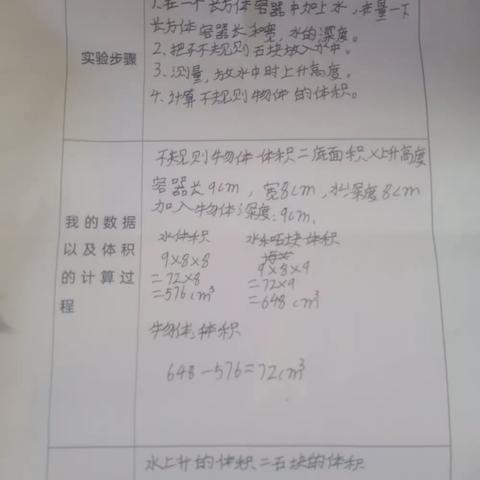 1.在一个长方体容器中加上水,来量一下
长方体容器长和宽,水的深度。
实验步骤
2.把不规则石块放入水中。
3.测量,放水中时上升高度。
4.计算不规则物体的体积。
不规则物体体积=底面积×上升高度
容器长9cm,宽8cm,水深度8cm
加入物体深度:9cm.
我的数据以及体积的计算过程
水体积 水和石块体积
9×8×8 9×8×9
=72×8 =72×9
=576cm³ =648cm³
物体体积
648-576=72cm³
水上升的体积=石块的体积